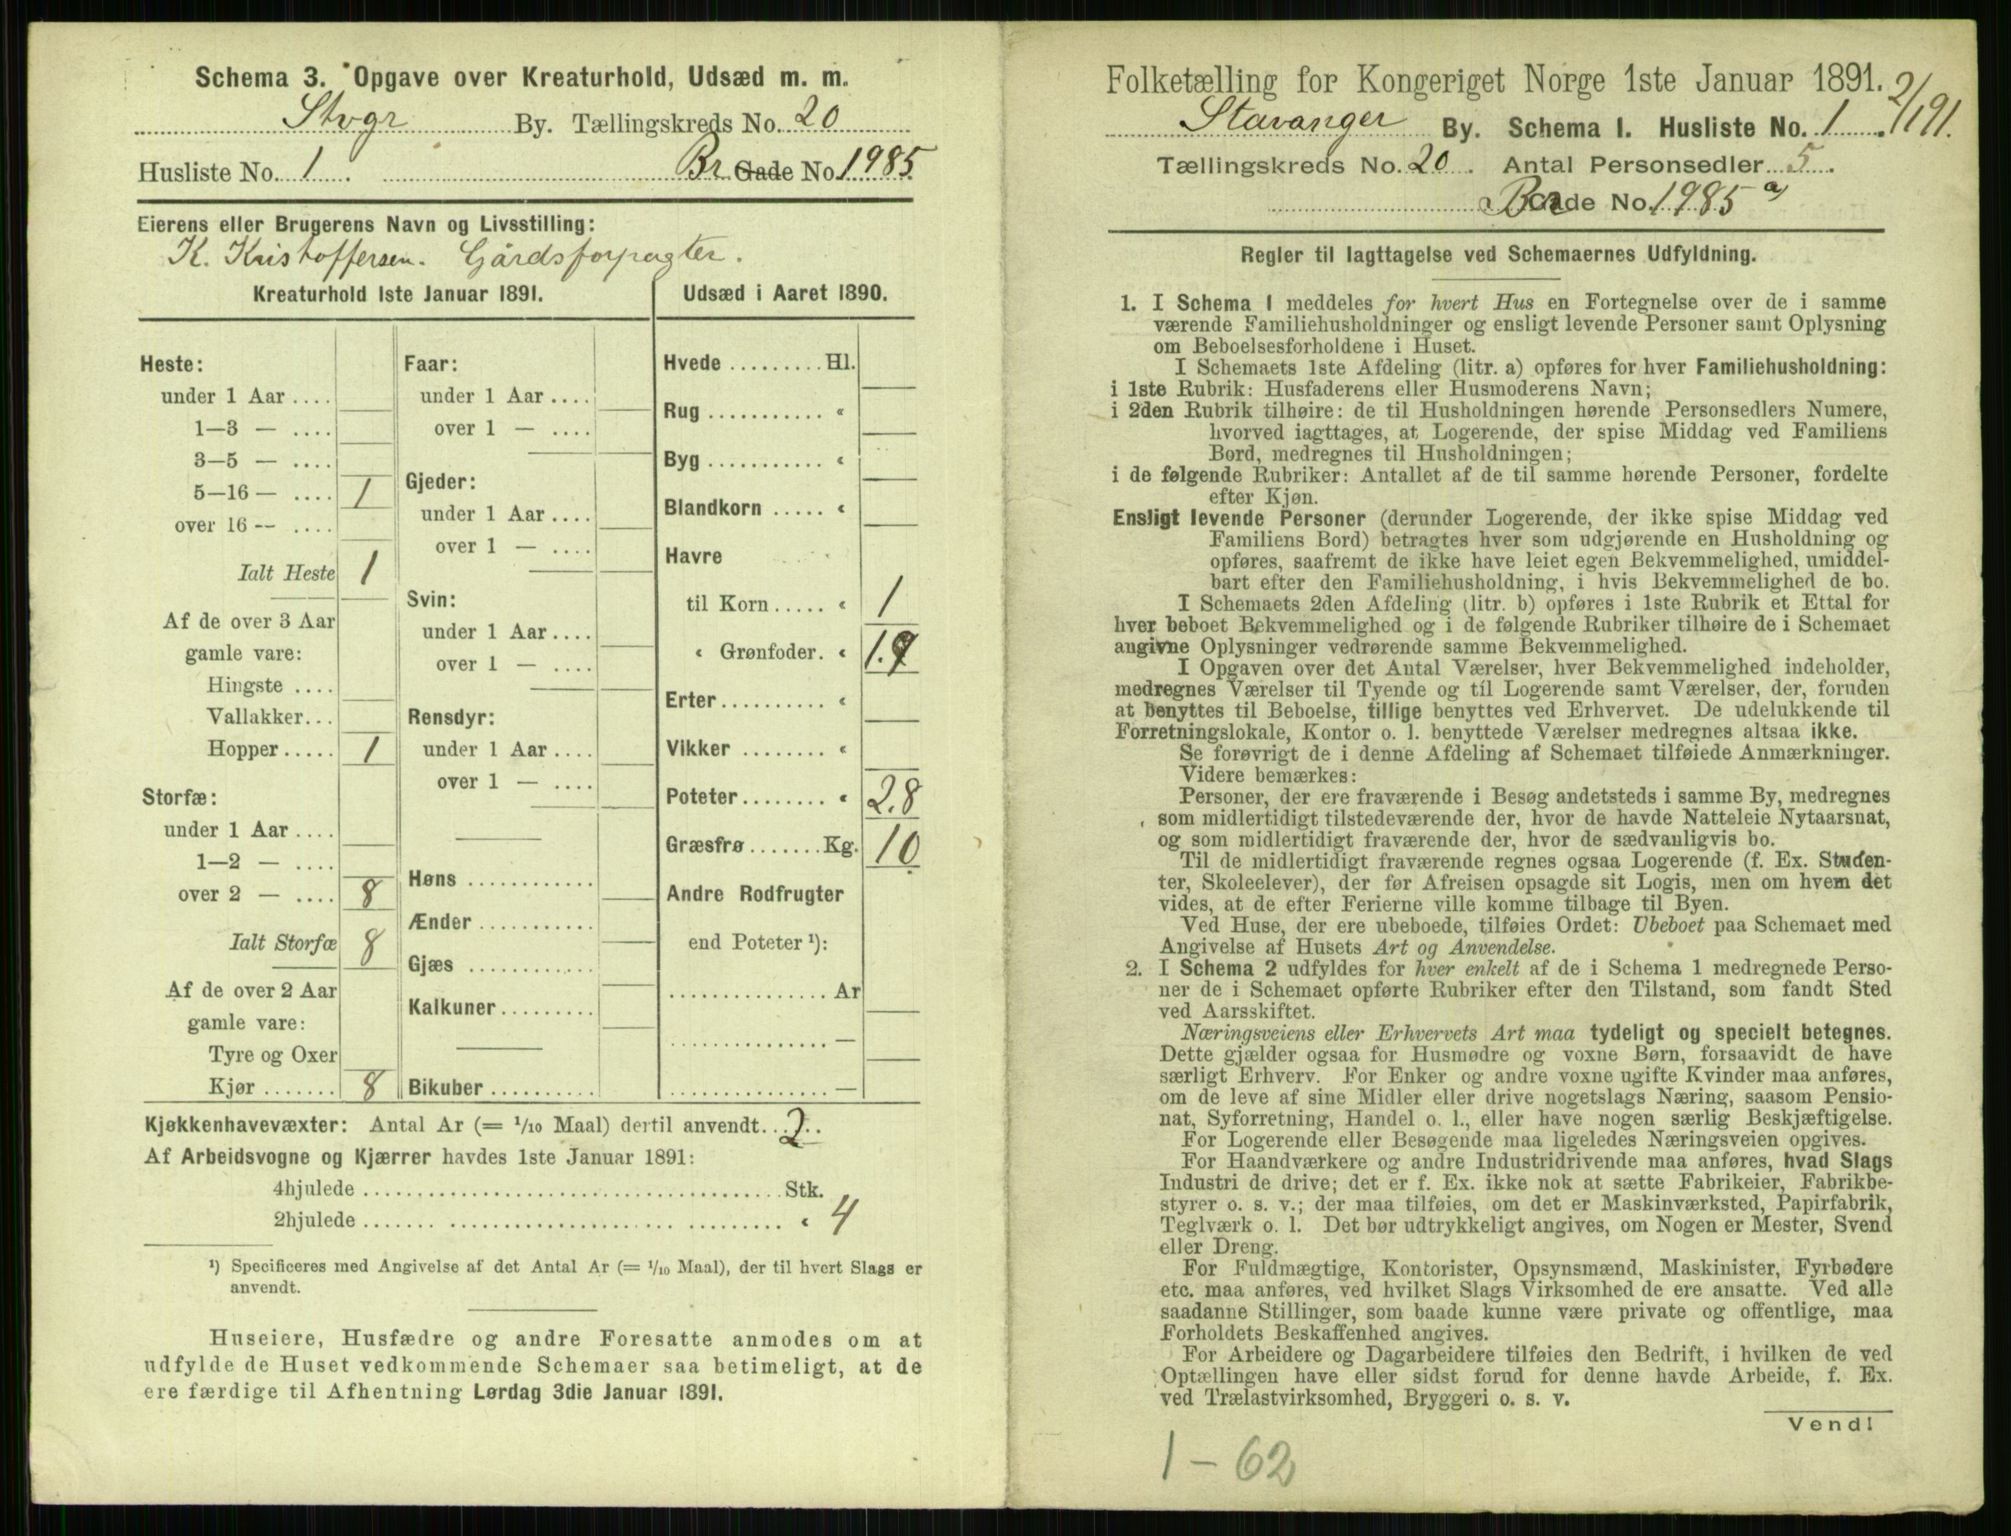 Schema 3. Opgave over Kreaturhold, Udsæd m. m.
Stvgr By. Tællingskreds No. 20
Husliste No. 1. Br. Gade No. 1985
Eierens eller Brugerens Navn og Livsstilling:
K. Kristoffersen. Gårdsforpagter.
Kreaturhold 1ste Januar 1891.
Heste:
under 1 Aar ....
1—3 — ....
3—5 — ....
5—16 — .... 1
over 16 — ....
Ialt Heste 1
Af de over 3 Aar
gamle vare:
Hingste ....
Vallakker...
Hopper ..... 1
Storfæ:
under 1 Aar ....
1—2 — ....
over 2 — .... 8
Ialt Storfæ 8
Af de over 2 Aar
gamle vare:
Tyre og Oxer
Kjør ....... 8
Faar:
under 1 Aar ....
over 1 — ....
Gjeder:
under 1 Aar ....
over 1 — ....
Svin:
under 1 Aar ....
over 1 — ....
Rensdyr:
under 1 Aar ....
over 1 — ....
Høns ............
Ænder ...........
Gjæs ............
Kalkuner .........
Bikuber ..........
Udsæd i Aaret 1890.
Hvede ......... Hl.
Rug ........... «
Byg ........... «
Blandkorn ..... «
Havre
til Korn ..... « 1
« Grønfoder. «
Erter .......... «
Vikker ........ «
Poteter ........ « 2.8
Græsfrø ....... Kg. 10
Andre Rodfrugter
end Poteter ¹):
............... Ar
............... —
............... —
Kjøkkenhavevæxter: Antal Ar (= 1/10 Maal) dertil anvendt.. 2..
Af Arbeidsvogne og Kjærrer havdes 1ste Januar 1891:
4hjulede ........................................ Stk.
2hjulede ........................................ « 4
¹) Specificeres med Angivelse af det Antal Ar (= 1/10 Maal), der til hvert Slags er
anvendt.
Huseiere, Husfædre og andre Foresatte anmodes om at
udfylde de Huset vedkommende Schemaer saa betimeligt, at de
ere færdige til Afhentning Lørdag 3die Januar 1891.
Folketælling for Kongeriget Norge 1ste Januar 1891. 2/1 91.
Stavanger By. Schema 1. Husliste No. 1.
Tællingskreds No. 20. Antal Personsedler 5.
Br Gade No. 1985 a)
Regler til Iagttagelse ved Schemaernes Udfyldning.
1. I Schema 1 meddeles for hvert Hus en Fortegnelse over de i samme
værende Familiehusholdninger og ensligt levende Personer samt Oplysning
om Beboelsesforholdene i Huset.
I Schemaets 1ste Afdeling (litr. a) opføres for hver Familiehusholdning:
i 1ste Rubrik: Husfaderens eller Husmoderens Navn;
i 2den Rubrik tilhøire: de til Husholdningen hørende Personsedlers Numere,
hvorved iagttages, at Logerende, der spise Middag ved Familiens
Bord, medregnes til Husholdningen;
i de følgende Rubriker: Antallet af de til samme hørende Personer, fordelte
efter Kjøn.
Ensligt levende Personer (derunder Logerende, der ikke spise Middag ved
Familiens Bord) betragtes hver som udgjørende en Husholdning og
opføres, saafremt de ikke have leiet egen Bekvemmelighed, umiddel-
bart efter den Familiehusholdning, i hvis Bekvemmelighed de bo.
I Schemaets 2den Afdeling (litr. b) opføres i 1ste Rubrik et Ettal for
hver beboet Bekvemmelighed og i de følgende Rubriker tilhøire de i Schemaet
angivne Oplysninger vedrørende samme Bekvemmelighed.
I Opgaven over det Antal Værelser, hver Bekvemmelighed indeholder,
medregnes Værelser til Tyende og til Logerende samt Værelser, der, foruden
at benyttes til Beboelse, tillige benyttes ved Erhvervet. De udelukkende til
Forretningslokale, Kontor o. l. benyttede Værelser medregnes altsaa ikke.
Se forøvrigt de i denne Afdeling af Schemaet tilføiede Anmærkninger.
Videre bemærkes:
Personer, der ere fraværende i Besøg andetsteds i samme By, medregnes
som midlertidigt tilstedeværende der, hvor de havde Natteleie Nytaarsnat,
og som midlertidigt fraværende der, hvor de sædvanligvis bo.
Til de midlertidigt fraværende regnes ogsaa Logerende (f. Ex. Studen-
ter, Skoleelever), der før Afreisen opsagde sit Logis, men om hvem det
vides, at de efter Ferierne ville komme tilbage til Byen.
Ved Huse, der ere ubeboede, tilføies Ordet: Ubeboet paa Schemaet med
Angivelse af Husets Art og Anvendelse.
2. I Schema 2 udfyldes for hver enkelt af de i Schema 1 medregnede Perso-
ner de i Schemaet opførte Rubriker efter den Tilstand, som fandt Sted
ved Aarsskiftet.
Næringsveiens eller Erhvervets Art maa tydeligt og specielt betegnes.
Dette gjælder ogsaa for Husmødre og voxne Børn, forsaavidt de have
særligt Erhverv. For Enker og andre voxne ugifte Kvinder maa anføres,
om de leve af sine Midler eller drive nogetslags Næring, saasom Pensio-
nat, Syforretning, Handel o. l., eller have nogen særlig Beskjæftigelse.
For Logerende eller Besøgende maa ligeledes Næringsveien opgives.
For Haandværkere og andre Industridrivende maa anføres, hvad Slags
Industri de drive; det er f. Ex. ikke nok at sætte Fabrikeier, Fabrikbe-
styrer o. s. v.; der maa tilføies, om det er Maskinværksted, Papirfabrik,
Teglværk o. l. Det bør udtrykkeligt angives, om Nogen er Mester, Svend
eller Dreng.
For Fuldmægtige, Kontorister, Opsynsmænd, Maskinister, Fyrbødere
etc. maa anføres, ved hvilket Slags Virksomhed de ere ansatte. Ved alle
saadanne Stillinger, som baade kunne være private og offentlige, maa
Forholdets Beskaffenhed angives.
For Arbeidere og Dagarbeidere tilføies den Bedrift, i hvilken de ved
Optællingen have eller sidst forud for denne havde Arbeide, f. Ex.
ved Trælastvirksomhed, Bryggeri o. s. v.
Vend!
1 – 62